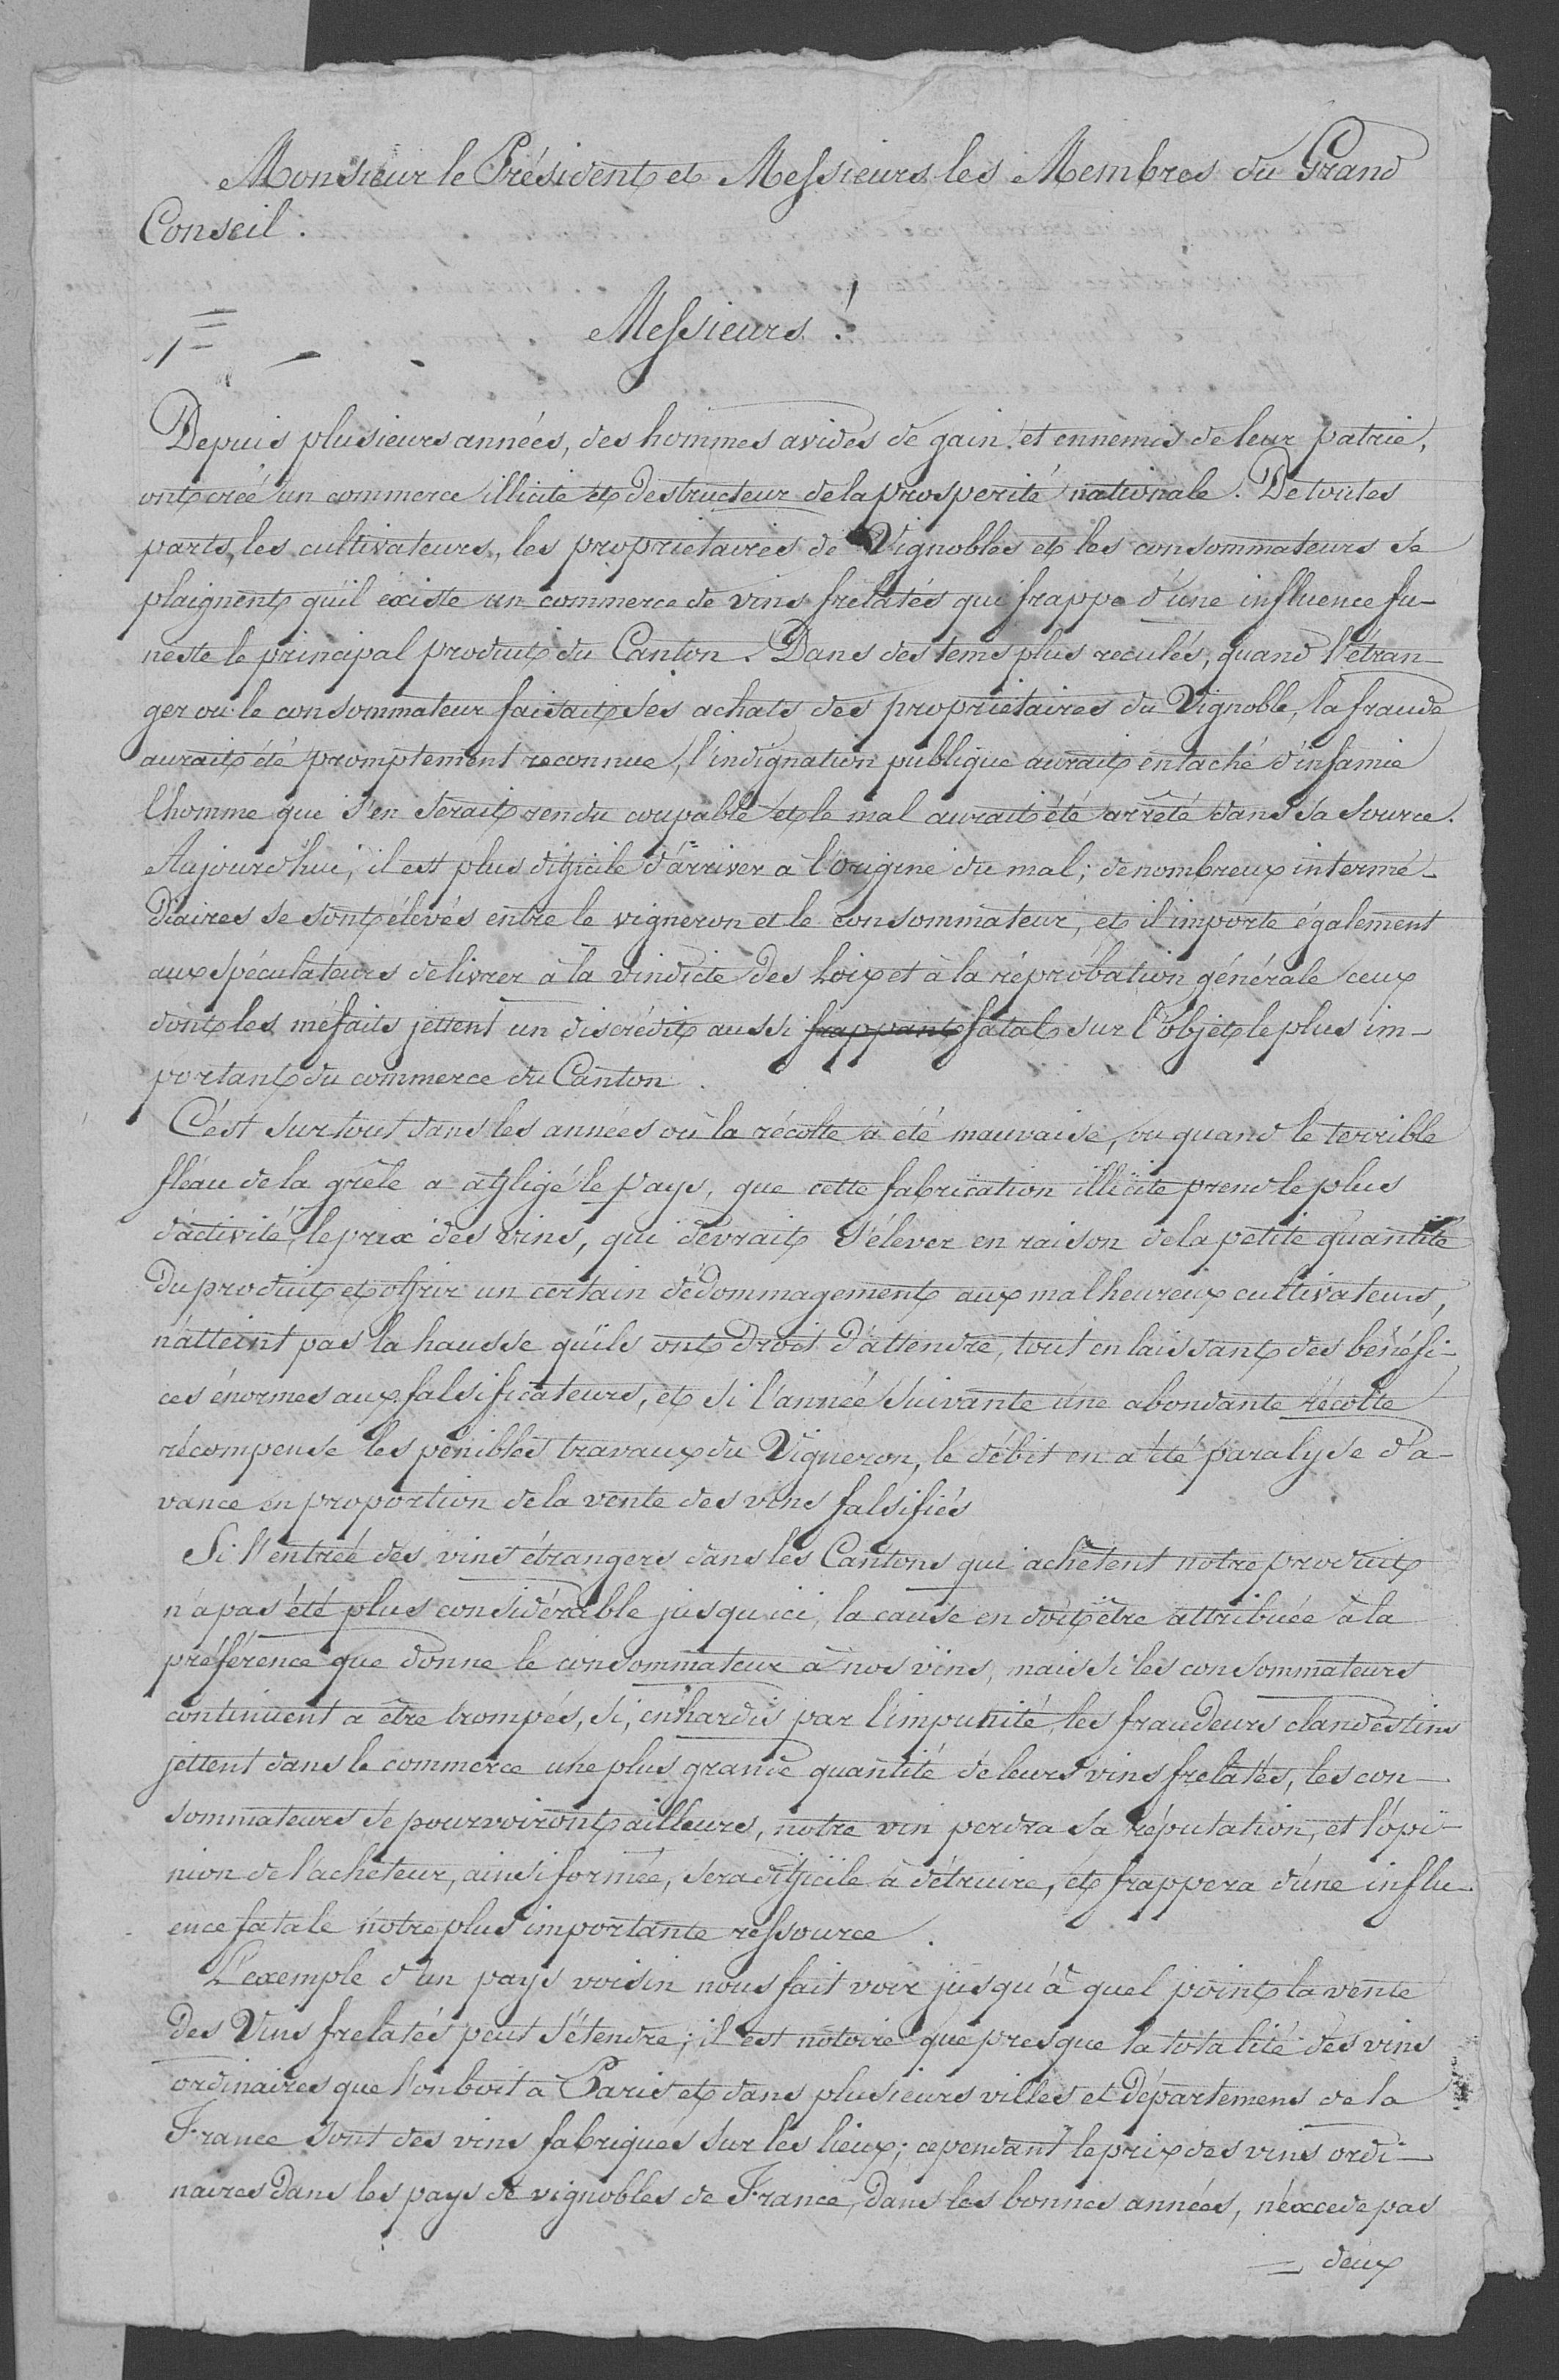 Monsieur le Président et Messieurs les Membres du Grand
Conseil.
Messieurs!
Depuis plusieurs années, des hommes avides de gain et ennemis de leur patrie,
ont créé un commerce illicite et destructeur de la prosperité nationale. De toutes
parts, les cultivateurs, les proprietaires de Vignobles et les consommateurs se
plaignent qu'il éxiste un commerce de vins frelatés qui frappe d'une influence fu-
neste le principal produit du Canton. Dans des tems plus reculés, quand l'étran-
ger ou le consommateur faisait ses achats des propriétaires du Vignoble, la fraude
aurait été promptement reconnue, l'indignation publique aurait entaché d'infamie
l'homme que s'en serait rendu coupable et le mal aurait été arrêté dans sa source.
Aujourd'hui, il est plus difficile d'arriver a l'origine du mal; de nombreux intermé-
diaires se sont élevés entre le vigneron et le consommateur, et il importe également
aux spéculateurs de livrer à la vindicte des Loix et à la réprobation générale ceux
dont les méfaits jettent un discrédit aussi frappant fatal sur l'objet le plus im-
portant du commerce du Canton.
C'est surtout dans les années où la récolte a été mauvaise, ou quand le terrible
fléau de la grêle a affligé le pays, que cette fabrication illicite prend le plus
d'activité, le prix des vins, qui devrait s'élever en raison de la petite quantité
du produit et offrir un certain dédommagement aux malheureux cultivateurs,
n'atteint pas la hausse qu'ils ont droit d'attendre, tout en laissant des bénéfi-
ces énormes aux falsificateurs, et si l'année suivante une abondante récolte
récompense les penibles travaux du Vigneron, le débit en a été paralysé d'a-
vance en proportion de la vente des vins falsifiés
Si l'entrée des vins étrangers dans les Cantons qui achètent notre produit
n'a pas été plus considérable jusqu'ici, la cause en doit être attribuée à la
préférence que donne le consommateur à nos vins, mais si les consommateurs
continuent a être trompés, si, enhardis par l'impunité, les fraudeurs clandestins
jettent dans le commerce une plus grande quantité de leurs vins frelatés, les con-
sommateurs se pourvoiront ailleurs, notre vin perdra sa réputation, et l'opi-
nion de l'acheteur, ainsi formée, sera difficile à détruire, et frappera d'une influ-
ence fatale notre plus importante ressource.
L'exemple d'un pays voisin nous fait voir jusqu'à quel point la vente
des Vins frelatés peut s'étendre; il est notoire que presque la totalité des vins
ordinaires que l'on boit à Paris et dans plusieurs villes et départemens de la
France sont des vins fabriqués sur les lieux; cependant le prix des vins ordi-
naires dans les pays de vignobles de France, dans les bonnes années, n'éxcede pas
= deux